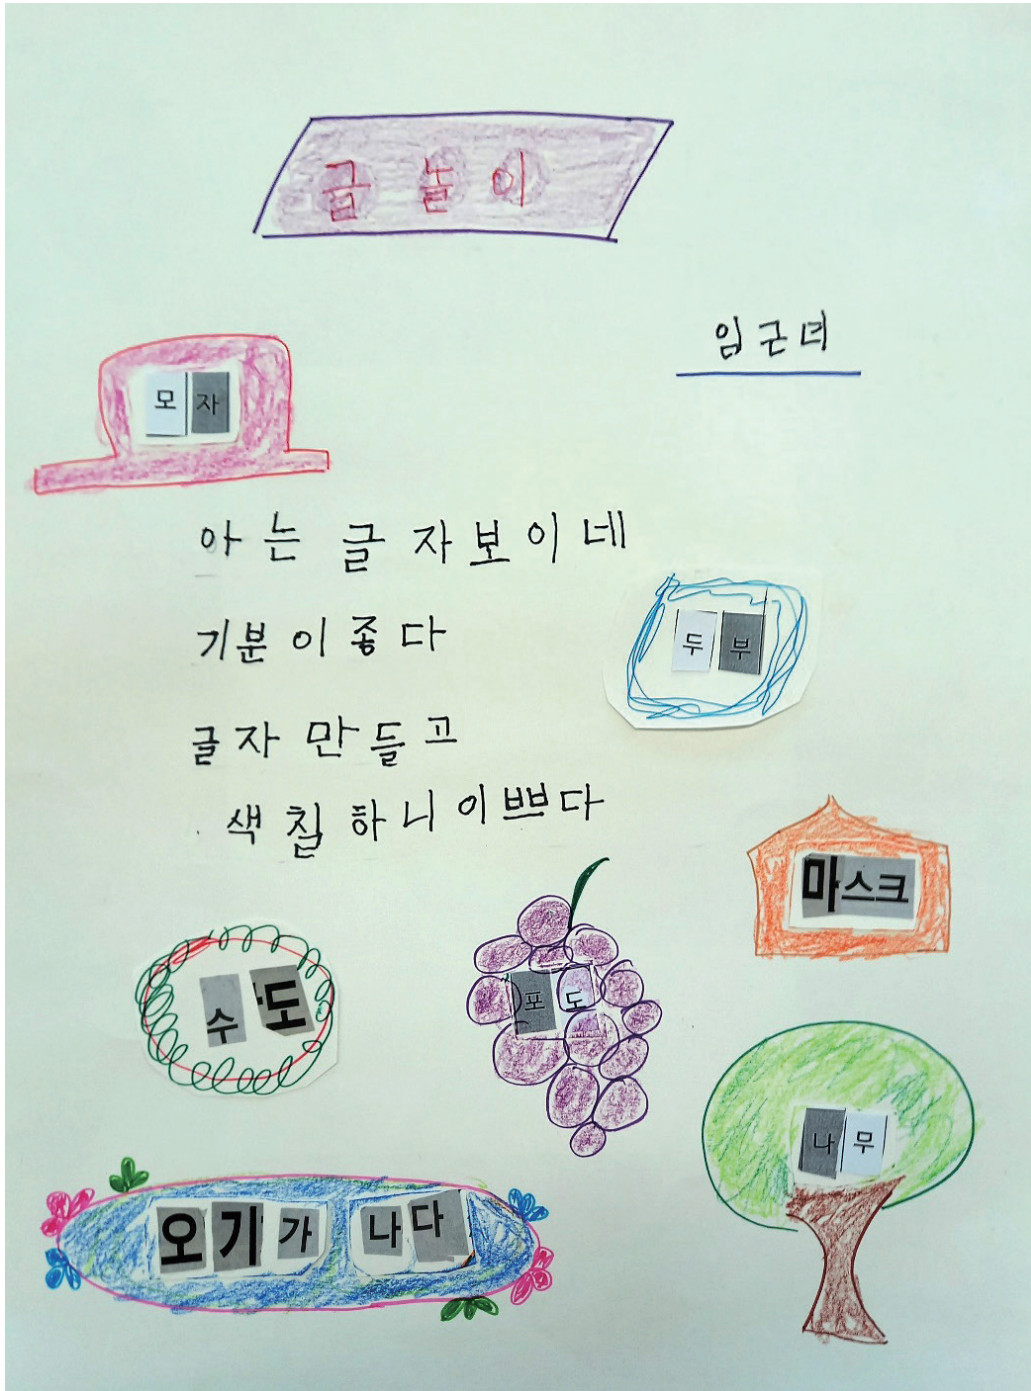 글 놀 이
임근녀
모자
아는 글자보이네
두부
기분이좋다
글자 만들고
색칠하니이쁘다
마스크
수도
포도
나무
오기가 나다